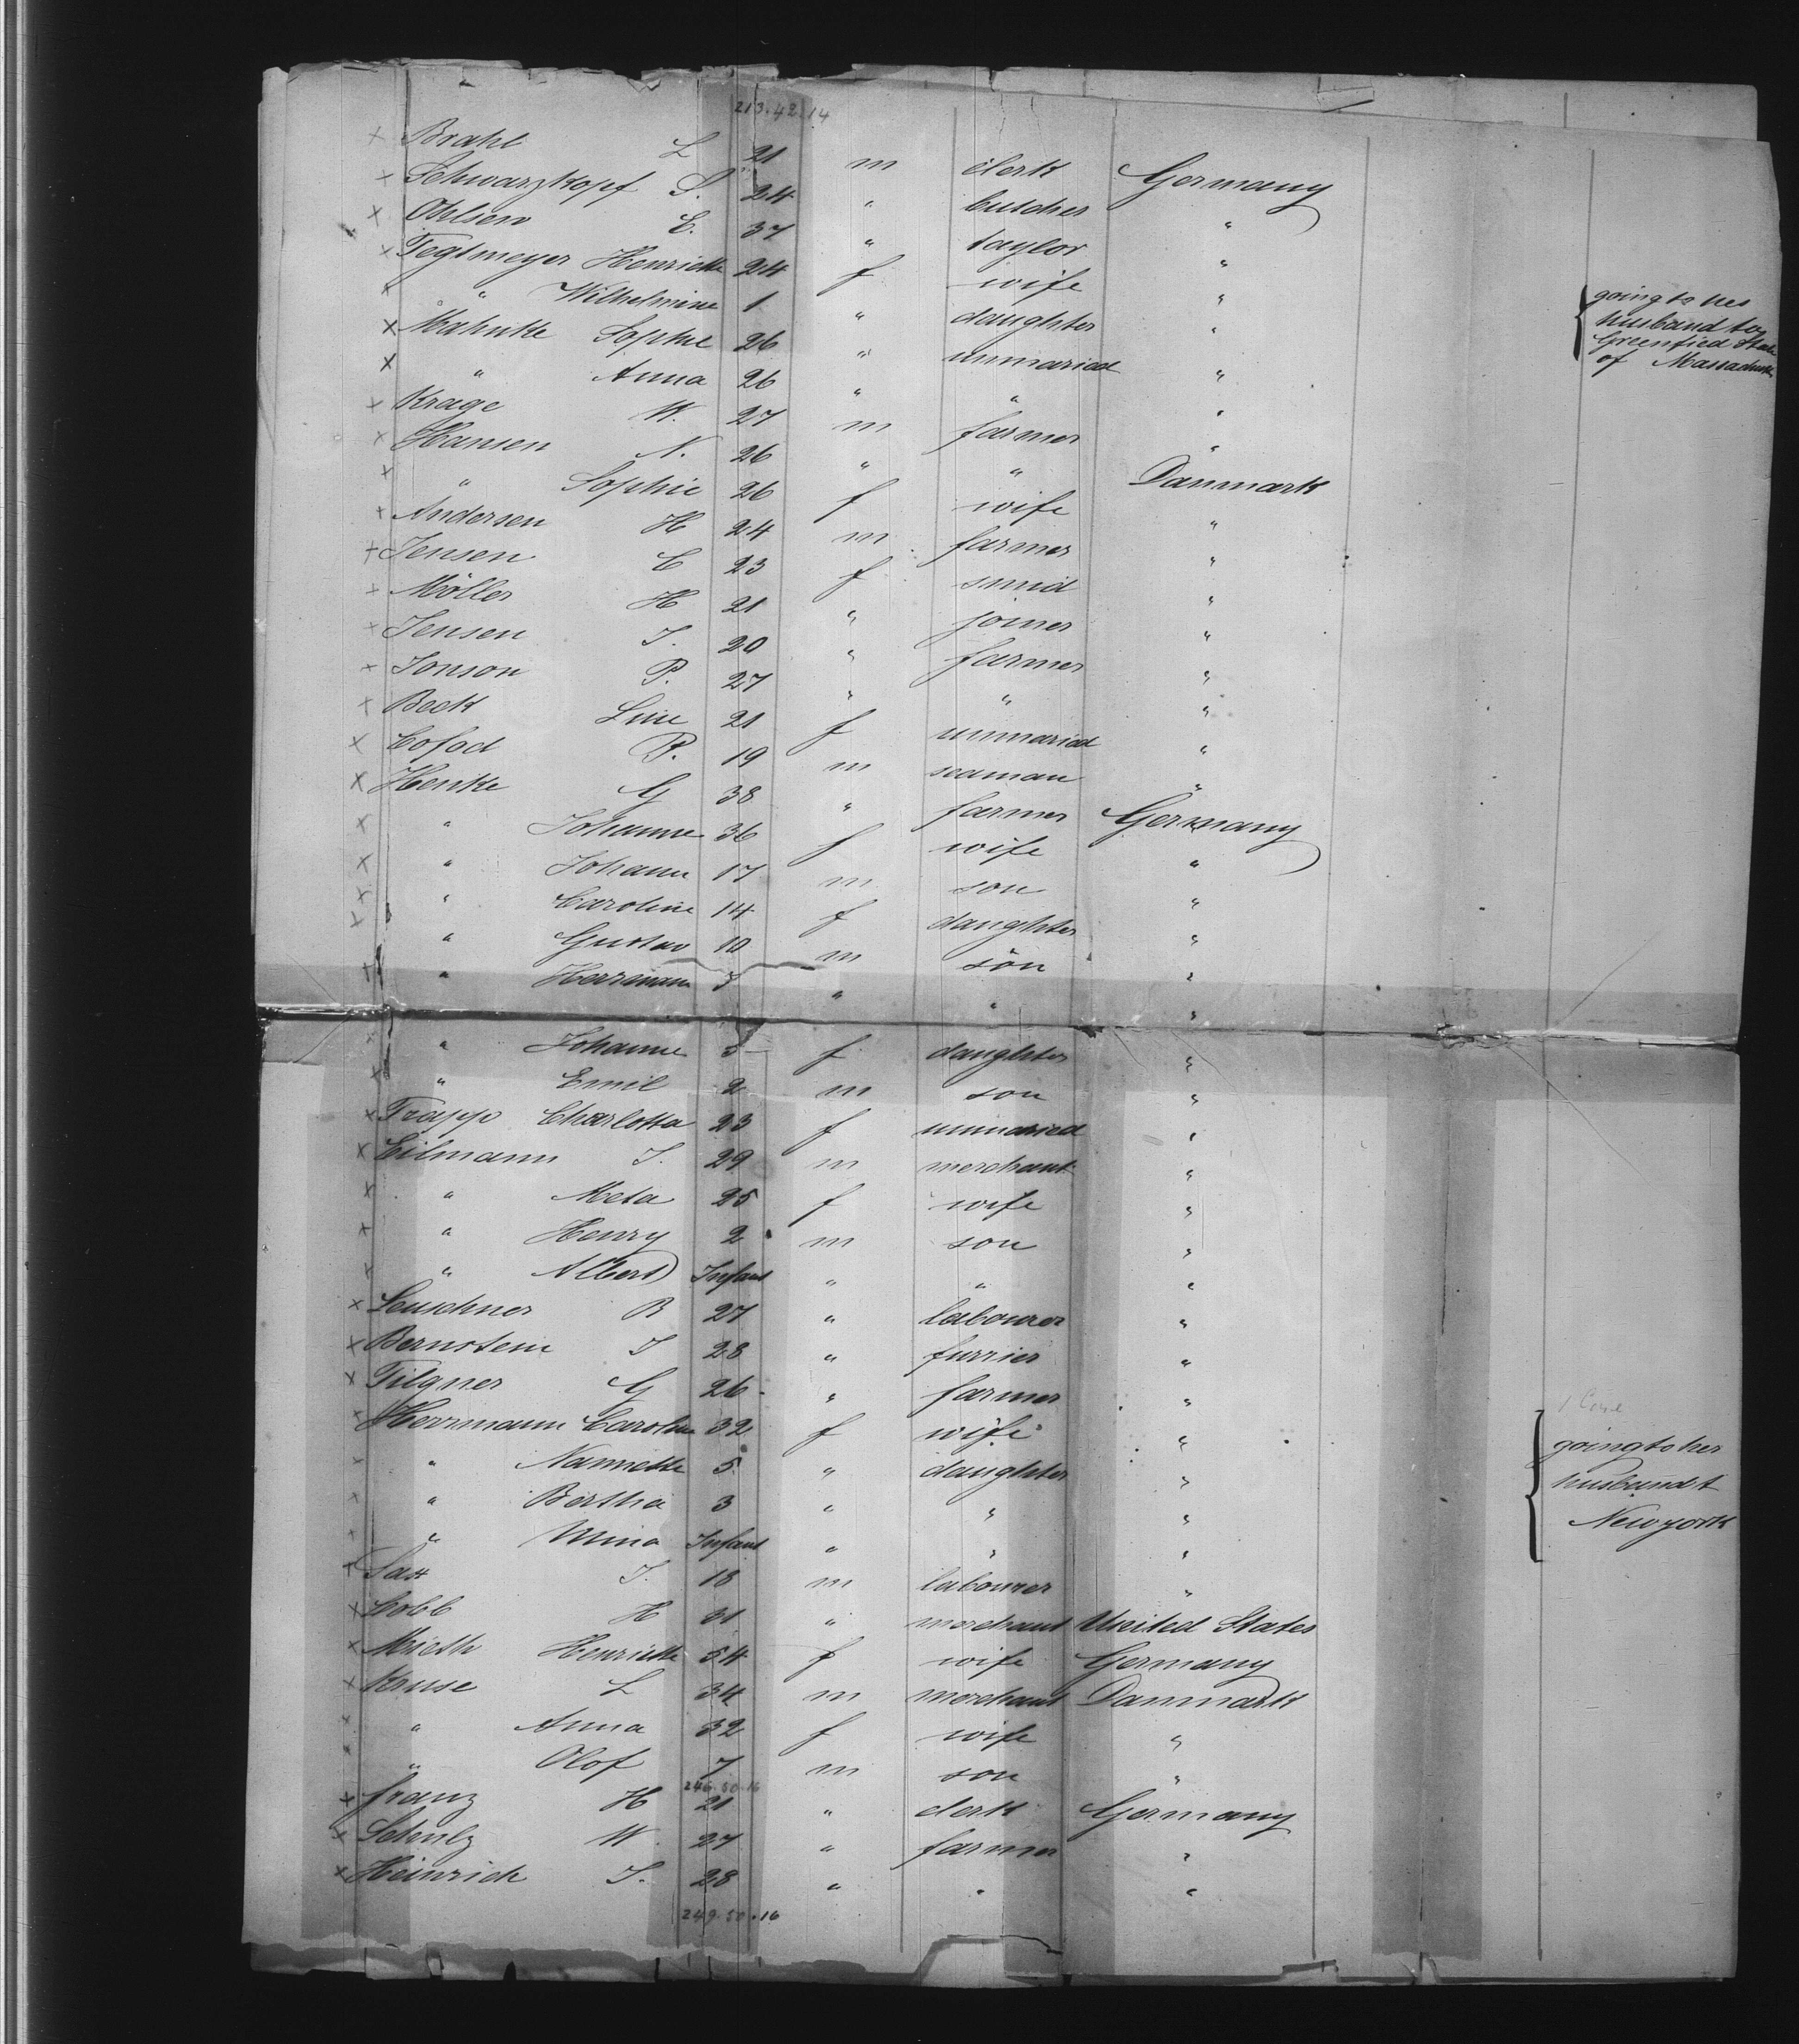 213.42.14
× Brahl L 21 m clerk Germany
× Schwarzkopf S. 24 " butcher "
× Ohlsen E. 37 " taylor "
× Tegtmeyer Henriette 24 f wife "
× " Wilhelmine 1 " daughter "
going to her
husband to
Greenfied State
of Massachusetts
× Mahnke Sophie 26 " unmaried "
× " Anna 26 " " "
× Krage W. 27 m farmer "
× Hansen N. 26 " " Danmark
× " Sophie 26 f wife "
× Andersen H 24 m farmer "
× Jensen C 23 f smid "
× Möller H 21 " joiner "
× Jensen J. 20 " farmer "
× Jonson P. 27 " " "
× Beck Line 21 f unmaried "
× Cofod P. 19 m seaman "
× Henke G 38 " farmer Germany
× " Johanne 36 f wife "
× " Johann 17 m son "
× " Caroline 14 f daughter "
× " Gustav 10 m son "
× " Herrmann " " "
× " Johanne 5 f daughter "
× " Emil 2 m son "
× Trapp Charlotta 23 f unmaried "
× Eilmann J. 29 m merchant "
× " Meta 25 f wife "
× " Henry 2 m son "
× " Albert Infant " " "
× Leuschner B 27 " labourer "
× Bernstein J 28 " furrier "
× Tilgner G 26 " farmer "
× Herrmann Caroline 32 f wife "
× " Nannette 5 " daughter "
× " Bertha 3 " " "
× " Mina Infant " " "
going to her
husband t
Newyork
× Sax J. 18 m labourer "
× Lobb H 31 " merchant United States
× Mieth Henriette 54 f wife Germany
× Kruse L 34 m merchant Danmark
× " Anna 32 f wife "
× " Olof 7 m son "
246.50.16
× Franz H 21 " clerk Germany
× Schulz W. 27 " farmer "
× Heinrich J. 28 " " "
249.50.16